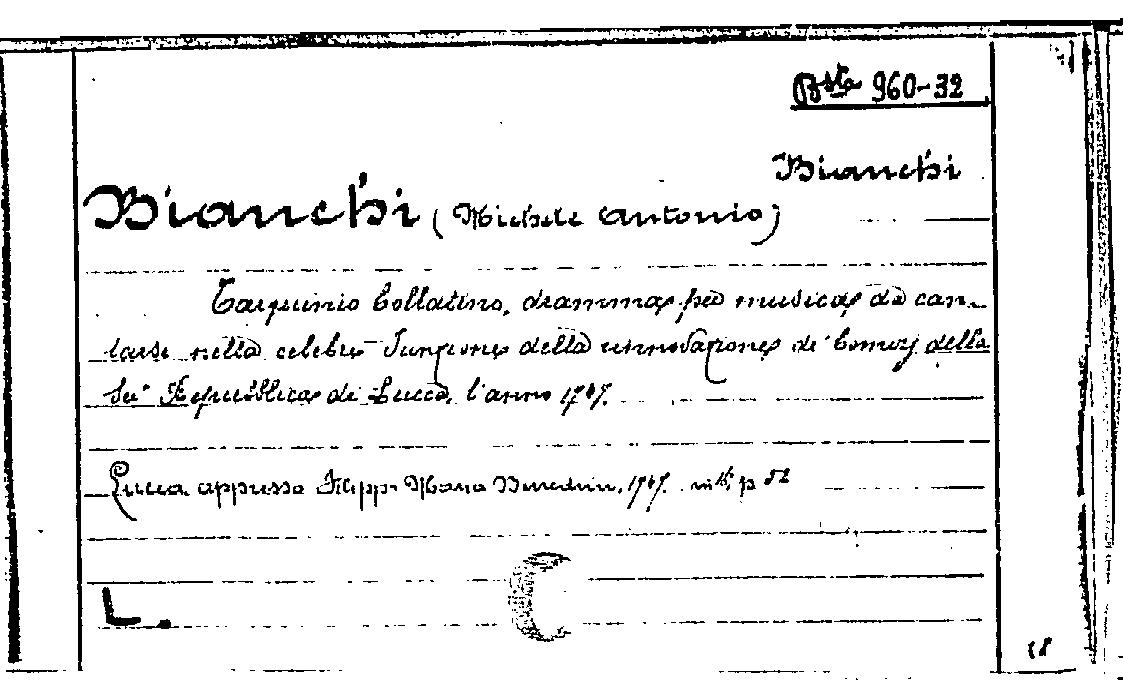 Bsta 960-32
Bianchi
Bianchi (Michele Antonio)
Tarquinio Collatino, dramma per musica da can-
tarsi nella celebre funzione della rinnovazione de' Comizj della
Ser.ma Repubblica di Lucca, l'anno 1747.
Lucca appresso Filippo Maria Benedini, 1747. in 4°, p 52
L.
18